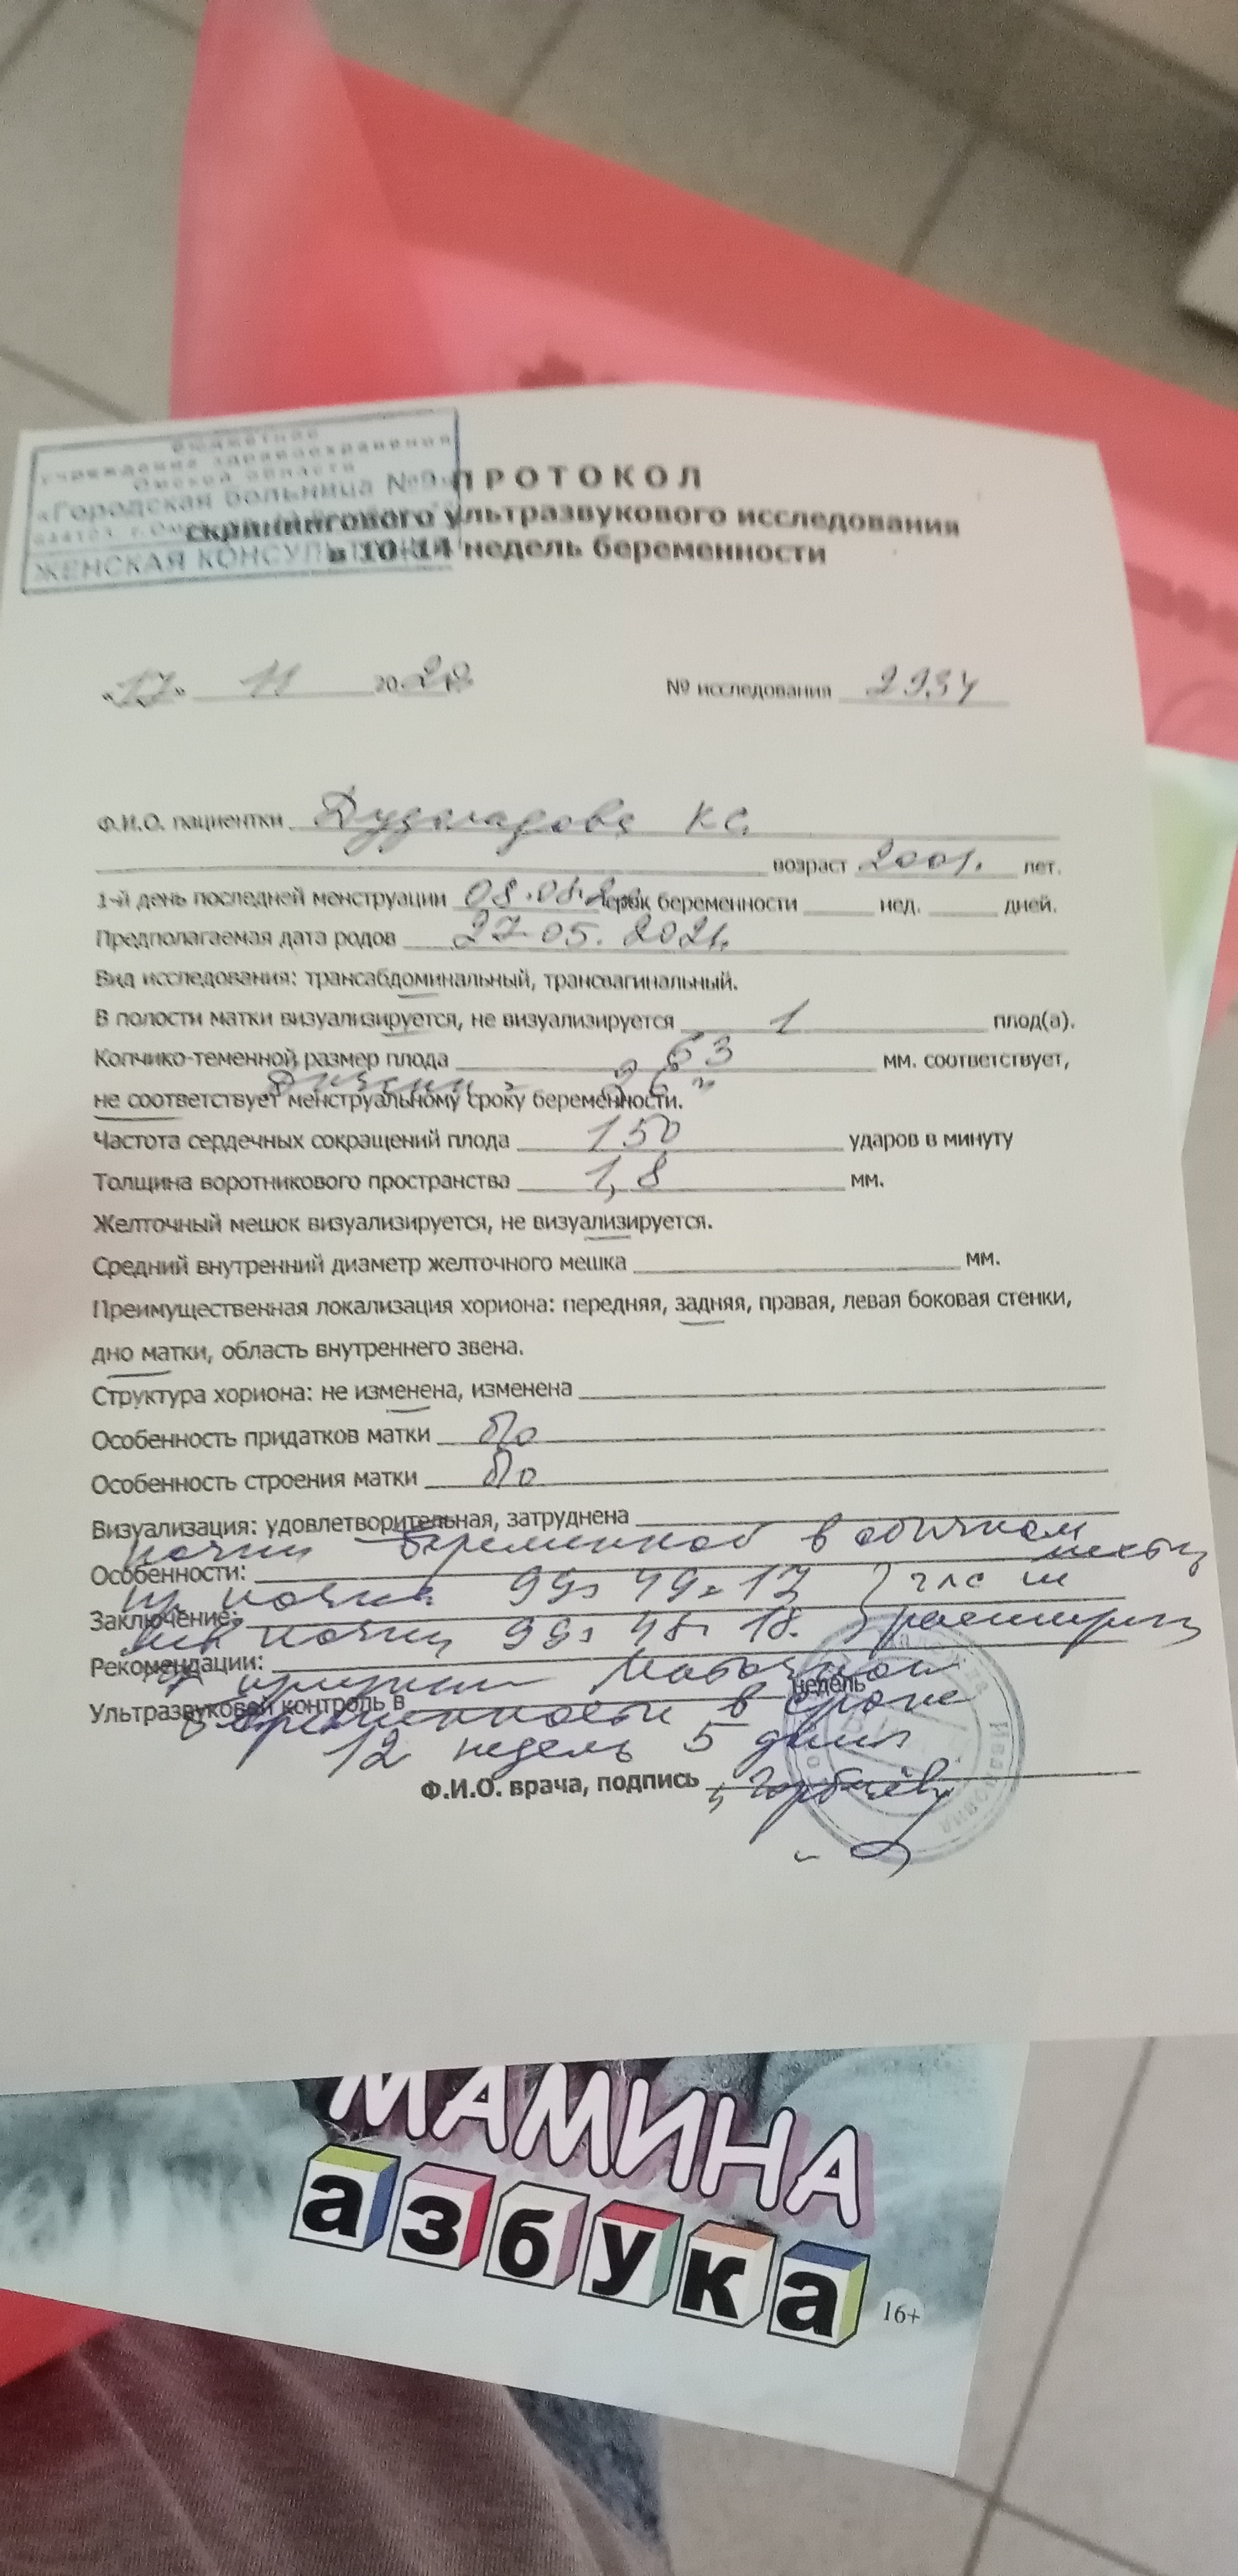 бюджетное
учреждение здравоохранения
Омской области
«Городская больница №9»
ЖЕНСКАЯ КОНСУЛЬТАЦИЯ
ПРОТОКОЛ
скринингового ультразвукового исследования
в 10-14 недель беременности
«17» 11 2020 № исследования 2934
Ф.И.О. пациентки К С.
возраст 2001. лет.
1-й день последней менструации 08.08.20 срок беременности нед. дней.
Предполагаемая дата родов 27.05.2021.
Вид исследования: трансабдоминальный, трансвагинальный.
В полости матки визуализируется, не визуализируется 1 плод(а).
Копчико-теменной размер плода 63 мм. соответствует,
не соответствует менструальному сроку беременности.
Частота сердечных сокращений плода 150 ударов в минуту
Толщина воротникового пространства 1,8 мм.
Желточный мешок визуализируется, не визуализируется.
Средний внутренний диаметр желточного мешка мм.
Преимущественная локализация хориона: передняя, задняя, правая, левая боковая стенки,
дно матки, область внутреннего звена.
Структура хориона: не изменена, изменена
Особенность придатков матки б/о
Особенность строения матки б/о
Визуализация: удовлетворительная, затруднена
почки беременной в обычном месте
Особенности:
пр почка 99 49 17 } члс не
Заключение:
лев почка 99 48 18. } расширены
Рекомендации:
маточной
Ультразвуковой контроль в недель
беременности в сроке
12 недель 5 дней
Ф.И.О. врача, подпись
МАМИНА
азбука
16+